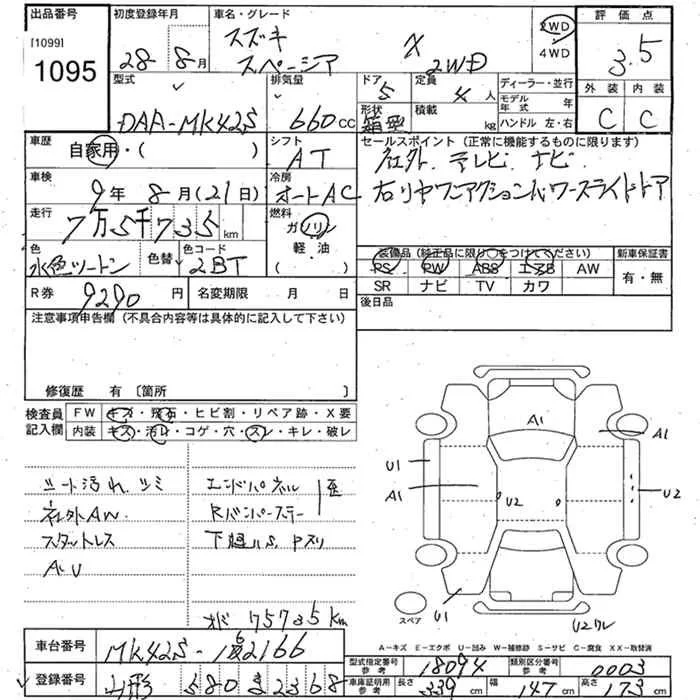 出品番号
[1099]
1095
初度登録年月
28年 8月
車名・グレード
スズキ
スペーシア X 2WD
2WD
4WD
評価点
3.5
外装 内装
C C
型式
DAA-MK42S
排気量
660cc
ドア
5
形状
箱型
定員
4人
積載
kg
ディーラー・並行
モデル年式 年
ハンドル 左・右
車歴
自家用・( )
シフト
AT
セールスポイント(正常に機能するものに限ります)
社外.テレビ.ナビ.
右リヤワンアクションパワースライドドア
車検
9年 8月(21日)
冷房
オートAC
走行
7万5千735km
燃料
ガソリン
軽・油
( )
色
水色ツートン
色替
色コード
2BT
装備品(純正品に限り○をつけてください)
PS PW ABS エアB AW
SR ナビ TV カワ
新車保証書
有・無
R券 9290円
名変期限 月 日
後日品
注意事項申告欄(不具合内容等は具体的に記入して下さい)
修復歴 有〔箇所 〕
検査員
記入欄
FW キズ・飛石・ヒビ割・リペア跡・X要
内装 キズ・汚レ・コゲ・穴・スレ・キレ・破レ
シート汚れ.シミ
社外AW.
スタットレス
AU
エンドパネル
Rバンパーステー
歪
下廻りS.Pズリ
オド 75735km
A1
A1
U1
A1
U2
U2
U1
U2ワレ
スペア
A-キズ E-エクボ U-凹み W-補修跡 S-サビ C-腐食 XX-取替済
車台番号
MK42S-
2166
登録番号
580
2368
型式指定番号
参考
18094
類別区分番号
参考
0003
車庫証明用
参考
長さ 339cm
幅 147cm
高さ 173cm